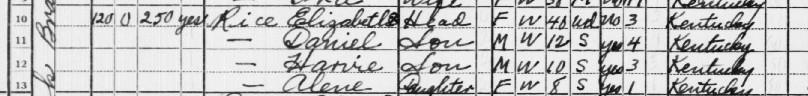 10 120 O 250 yes Rice Elizabeth Head F W 40 Wd No 3 Kentucky
11 — Daniel Son M W 12 S yes 4 Kentucky
12 — Harvie Son M W 10 S yes 3 Kentucky
13 — Alene Daughter F W 8 S yes 1 Kentucky